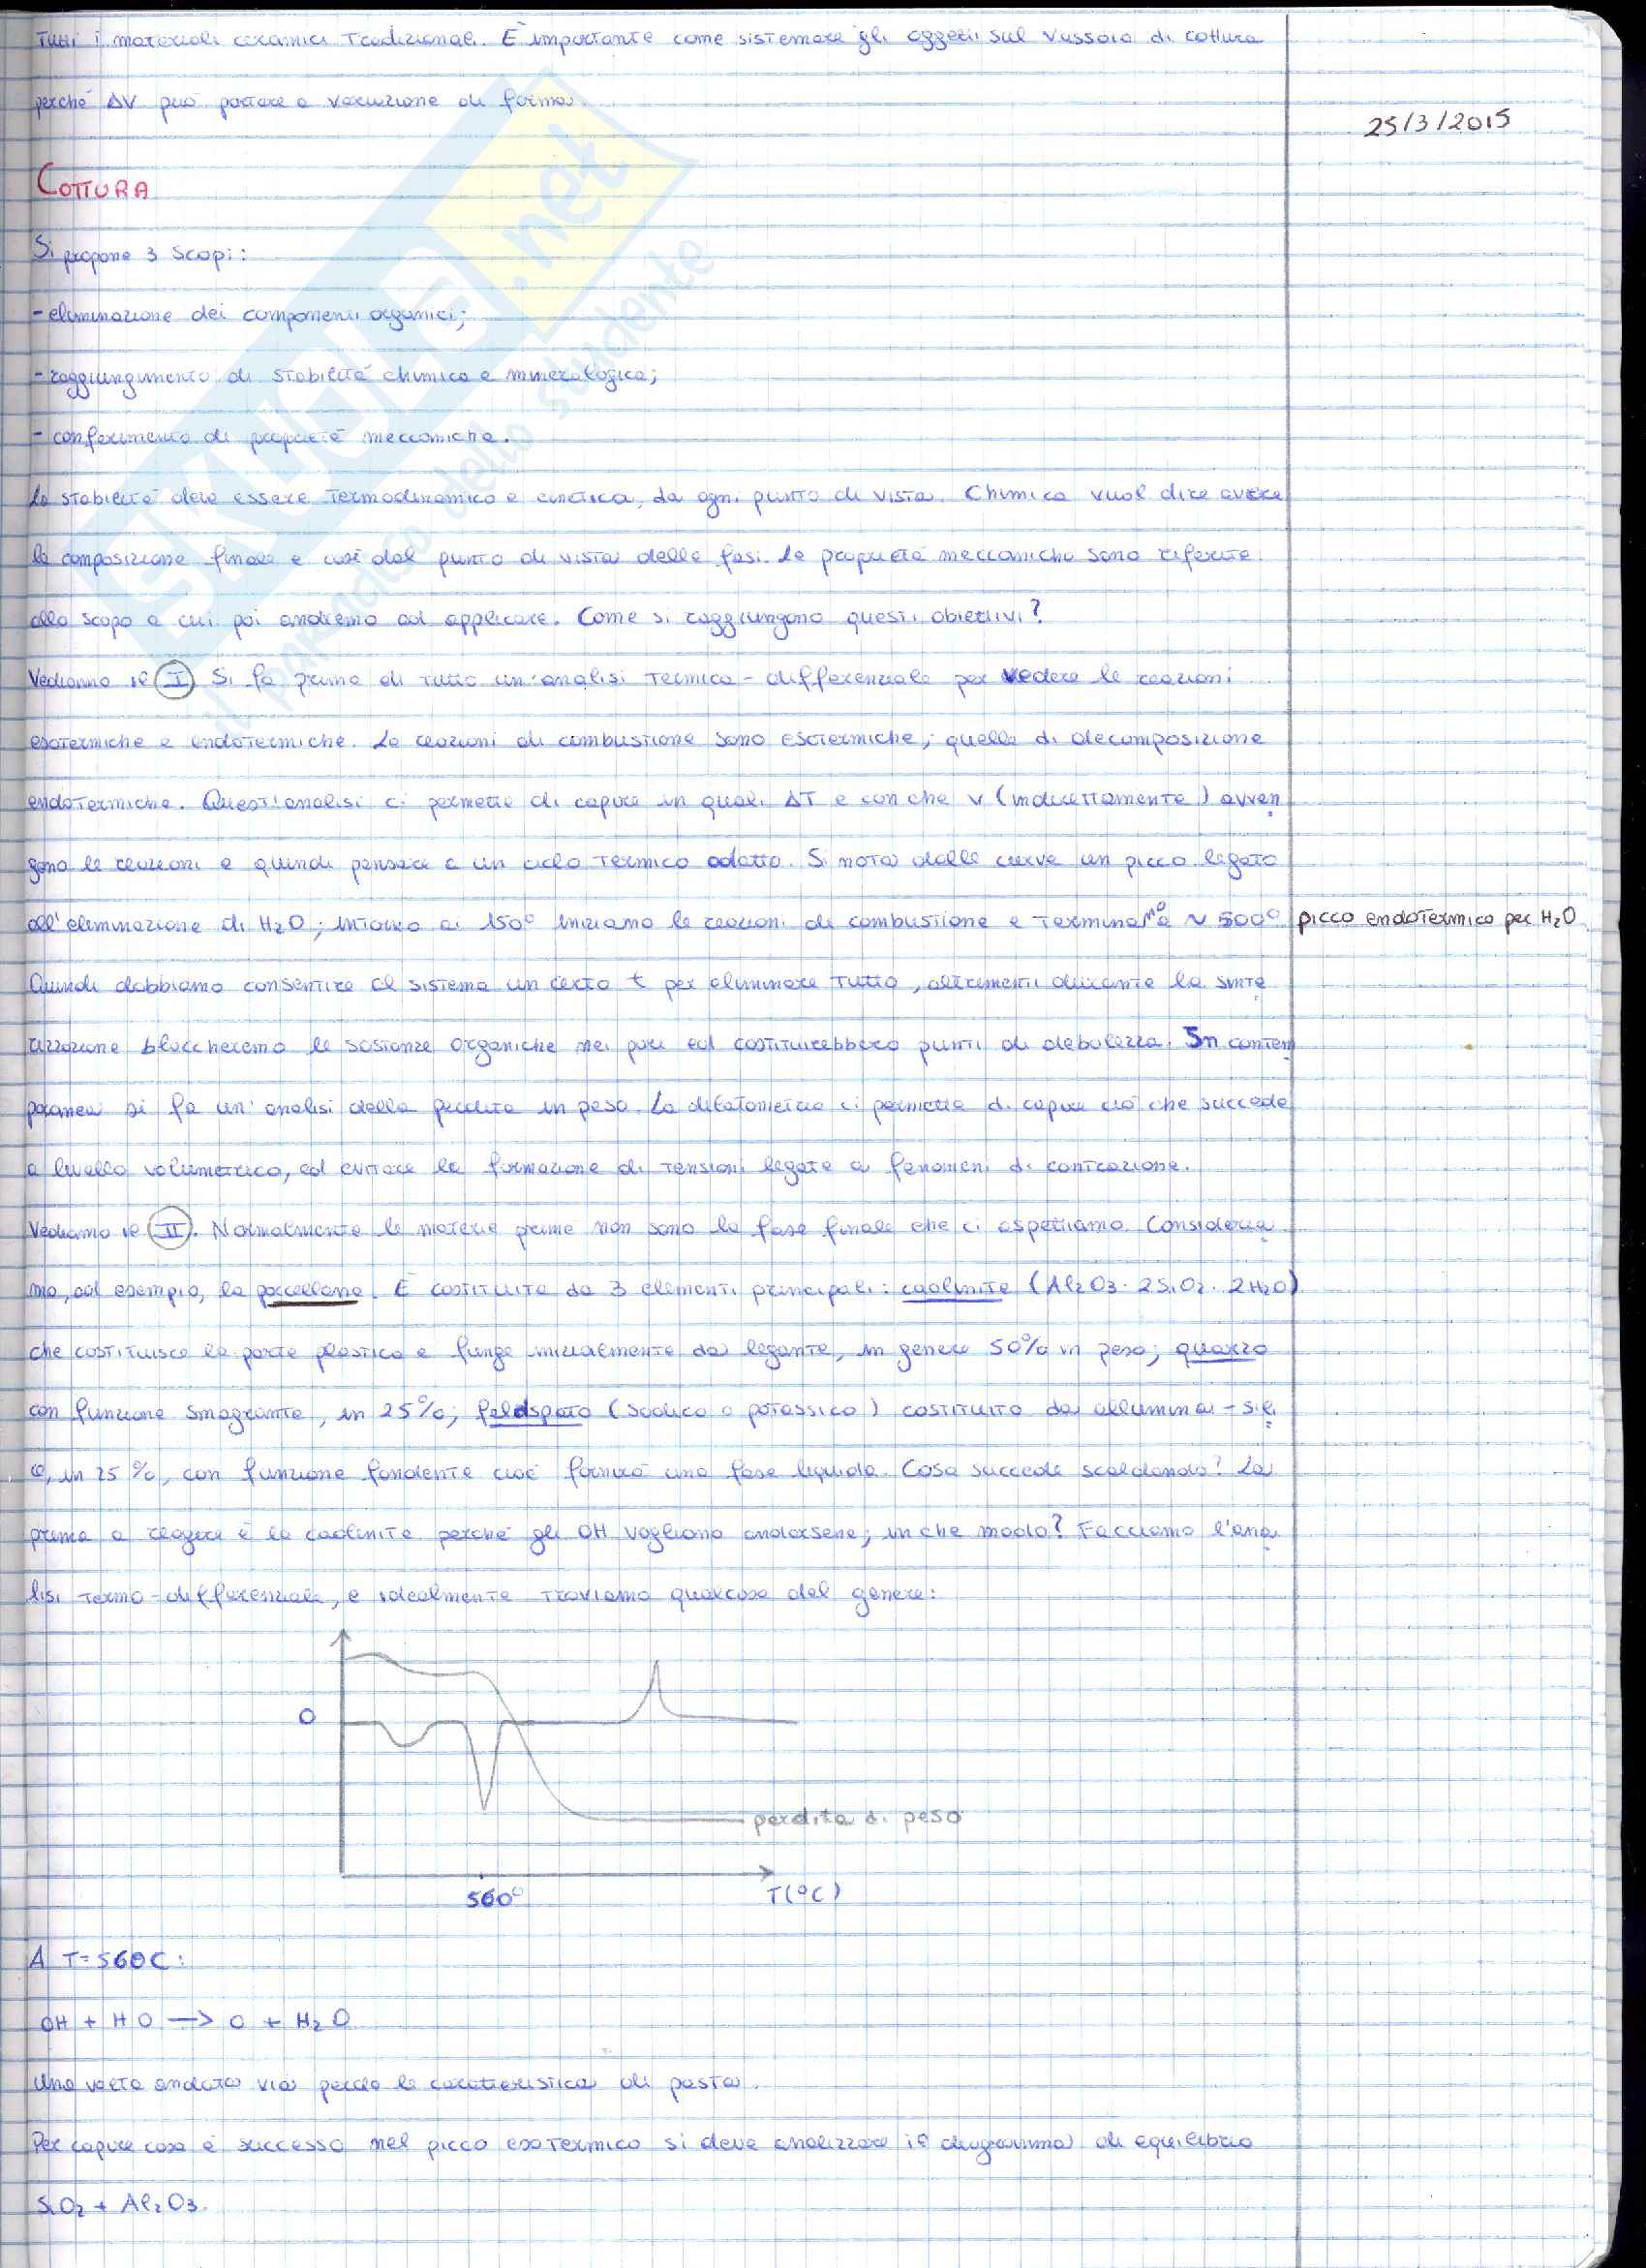 Tutti i materiali ceramici tradizionali. È importante come sistemare gli oggetti sul vassoio di cottura
perché ΔV può portare a variazione di forma.
25/3/2015
COTTURA
Si propone 3 scopi:
- eliminazione dei componenti organici;
- raggiungimento di stabilità chimica e mineralogica;
- conferimento di proprietà meccaniche.
La stabilità deve essere termodinamica e cinetica, da ogni punto di vista. Chimica vuol dire avere
la composizione finale e così dal punto di vista delle fasi. Le proprietà meccaniche sono riferite
allo scopo a cui poi andremo ad applicare. Come si raggiungono questi obiettivi?
Vediamo il I Si fa prima di tutto un'analisi termica-differenziale per vedere le reazioni
esotermiche e endotermiche. Le reazioni di combustione sono esotermiche, quelle di decomposizione
endotermiche. Quest'analisi ci permette di capire in quali ΔT e con che v (indirettamente) avven
gono le reazioni e quindi pensare a un ciclo termico adatto. Si nota dalle curve un picco legato
all'eliminazione di H2O; intorno ai 150° iniziano le reazioni di combustione e terminano a ~ 500°
picco endotermico per H2O
Quindi dobbiamo consentire al sistema un certo t per eliminare tutto, altrimenti durante la sinte
rizzazione bloccheremo le sostanze organiche nei pori ed costituirebbero punti di debolezza. In contem
poranea si fa un'analisi della perdita in peso. La dilatometria ci permette di capire ciò che succede
a livello volumetrico, ed evitare la formazione di tensioni legate a fenomeni di contrazione.
Vediamo il II. Normalmente le materie prime non sono la fase finale che ci aspettiamo. Consideria
mo, ad esempio, la porcellana. È costituita da 3 elementi principali: caolinite (Al2O3·2SiO2·2H2O)
che costituisce la parte plastica e funge inizialmente da legante, in genere 50% in peso; quarzo
con funzione smagrante, in 25%; feldspato (sodico o potassico) costituito da allumina-sili
ce, in 25%, con funzione fondente cioè fornirà una fase liquida. Cosa succede scaldando? La
prima a reagire è la caolinite perché gli OH vogliono andarsene; in che modo? Facciamo l'ana
lisi termo-differenziale, e idealmente troviamo qualcosa del genere:
0
perdita di peso
560°
T(°C)
A T=560C:
OH + HO —> O + H2O
Una volta andata via perdo le caratteristica di pasta.
Per capire cosa è successo nel picco esotermico si deve analizzare il diagramma di equilibrio
SiO2 + Al2O3.
SKUOLA.net
il paradiso dello studente